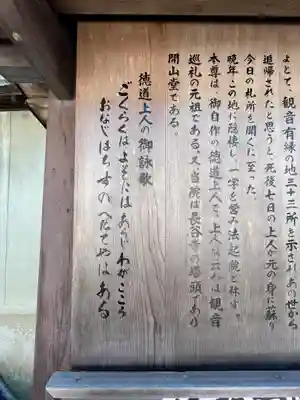 よとて、観音有縁の地三十三所を示されあの世から
追帰されたと思うと、死後七日の上人が元の身に蘇り
今日の札所を開くに至った。
晩年この地に隠棲し、一宇を営み法起院と称す。
本尊は、御自作の徳道上人で、上人は観音
巡礼の元祖である。又、当院は長谷寺の塔頭であり
開山堂である。
徳道上人の御詠歌
ごくらくはよそにはあらじわがこころ
おなじはちすのへだてやはある